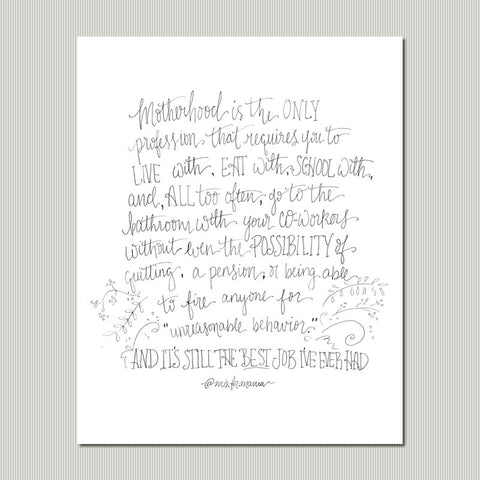 Motherhood is the ONLY
profession that requires you to
LIVE with, EAT with, SCHOOL with,
and, ALL too often, go to the
bathroom with your CO-WORKERS
without even the POSSIBILITY of
quitting, a pension, or being able
to fire anyone for
"unreasonable behavior."
AND IT'S STILL THE BEST JOB I'VE EVER HAD